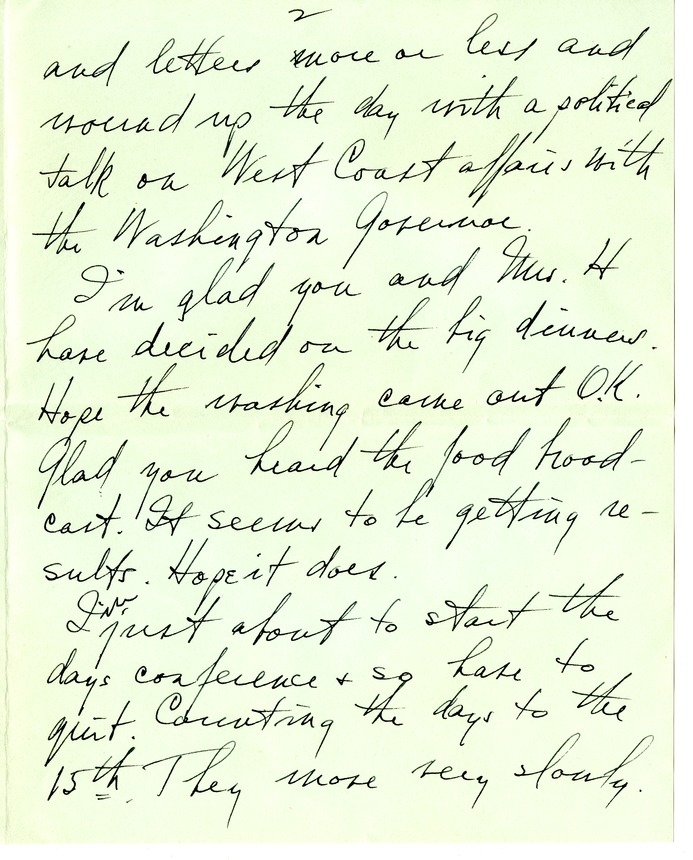 2
and letters more or less and
wound up the day with a political
talk on West Coast affairs with
the Washington Governor.
I'm glad you and Mrs. H
have decided on the big dinners.
Hope the washing came out O.K.
Glad you heard the food broad-
cast. It seems to be getting re-
sults. Hope it does.
I'm just about to start the
days conference + so have to
quit. Counting the days to the
15th. They move very slowly.